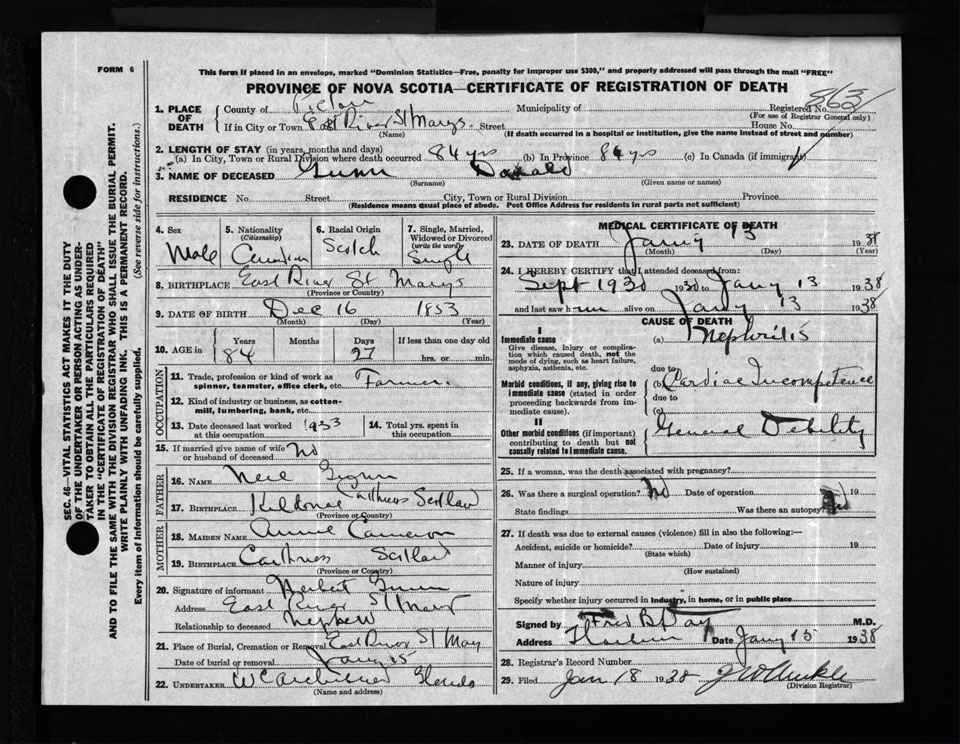 FORM 6
This form if placed in an envelope, marked "Dominion Statistics—Free, penalty for improper use $300," and properly addressed will pass through the mail "FREE"
PROVINCE OF NOVA SCOTIA—CERTIFICATE OF REGISTRATION OF DEATH
SEC. 46—VITAL STATISTICS ACT MAKES IT THE DUTY
OF THE UNDERTAKER OR PERSON ACTING AS UNDER-
TAKER TO OBTAIN ALL THE PARTICULARS REQUIRED
IN THE "CERTIFICATE OF REGISTRATION OF DEATH"
AND TO FILE THE SAME WITH THE DIVISION REGISTRAR WHO SHALL ISSUE THE BURIAL PERMIT.
WRITE PLAINLY WITH UNFADING INK. THIS IS A PERMANENT RECORD.
Every item of information should be carefully supplied. (See reverse side for instructions.)
1. PLACE OF DEATH
County of Pictou Municipality of Registered No. 863
(For use of Registrar General only)
If in City or Town East River St Marys Street House No.
(Name) (If death occurred in a hospital or institution, give the name instead of street and number)
2. LENGTH OF STAY (in years, months and days)
(a) In City, Town or Rural Division where death occurred 84 yrs (b) In Province 84 yrs (c) In Canada (if immigrant)
3. NAME OF DECEASED Gunn Donald
(Surname) (Given name or names)
RESIDENCE No. Street City, Town or Rural Division Province
(Residence means usual place of abode. Post Office Address for residents in rural parts not sufficient)
4. Sex
Male
5. Nationality
(Citizenship)
Canadian
6. Racial Origin
Scotch
7. Single, Married, Widowed or Divorced
(write the word)
Single
8. BIRTHPLACE East River St Marys
(Province or Country)
9. DATE OF BIRTH Dec 16 1853
(Month) (Day) (Year)
10. AGE in
Years Months Days If less than one day old
84 27 hrs. or min.
OCCUPATION
11. Trade, profession or kind of work as
spinner, teamster, office clerk, etc. Farmer.
12. Kind of industry or business, as cotton-
mill, lumbering, bank, etc.
13. Date deceased last worked
at this occupation 1933
14. Total yrs. spent in
this occupation
15. If married give name of wife
or husband of deceased No
FATHER
16. NAME Neil Gunn
17. BIRTHPLACE Kildonan Caithness Scotlan
(Province or Country)
MOTHER
18. MAIDEN NAME Annie Cameron
19. BIRTHPLACE Caithness Scotlan
(Province or Country)
20. Signature of informant Herbert Gunn
Address East River St Marys
Relationship to deceased Nephew
21. Place of Burial, Cremation or Removal East River St Mary
Date of burial or removal Jany 15
22. UNDERTAKER
(Name and address)
MEDICAL CERTIFICATE OF DEATH
23. DATE OF DEATH Jany 13 1938
(Month) (Day) (Year)
24. I HEREBY CERTIFY that I attended deceased from:
Sept 1930 1930 to Jany 13 1938
and last saw him alive on Jany 13 1938
CAUSE OF DEATH
I
Immediate cause
Give disease, injury or complica-
tion which caused death, not the
mode of dying, such as heart failure,
asphyxia, asthenia, etc.
(a) Nephritis
due to
Morbid conditions, if any, giving rise to
immediate cause (stated in order
proceeding backwards from im-
mediate cause).
(b) Cardiac Incompetence
due to
(c)
II
Other morbid conditions (if important)
contributing to death but not
causally related to immediate cause.
General Debility
25. If a woman, was the death associated with pregnancy?
26. Was there a surgical operation? No Date of operation 19
State findings Was there an autopsy? No
27. If death was due to external causes (violence) fill in also the following:—
Accident, suicide or homicide? Date of injury 19
(State which)
Manner of injury
(How sustained)
Nature of injury
Specify whether injury occurred in Industry, in home, or in public place
Signed by M.D.
Address Date Jany 15 1938
28. Registrar's Record Number
29. Filed Jan 18 1938
(Division Registrar)